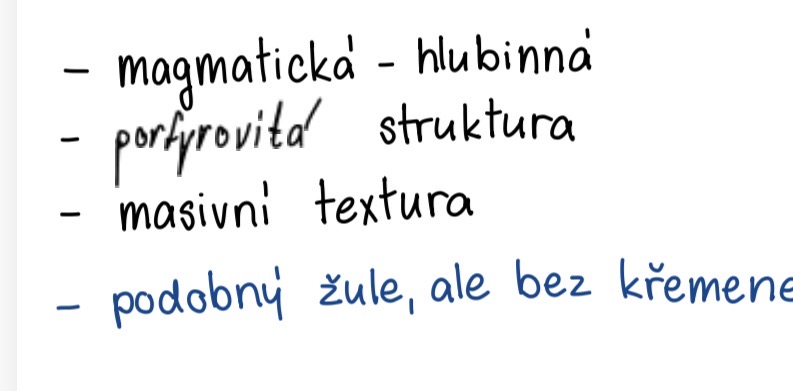 - magmatická - hlubinná
- porfyrovitá struktura
- masivní textura
- podobný žule, ale bez křemene